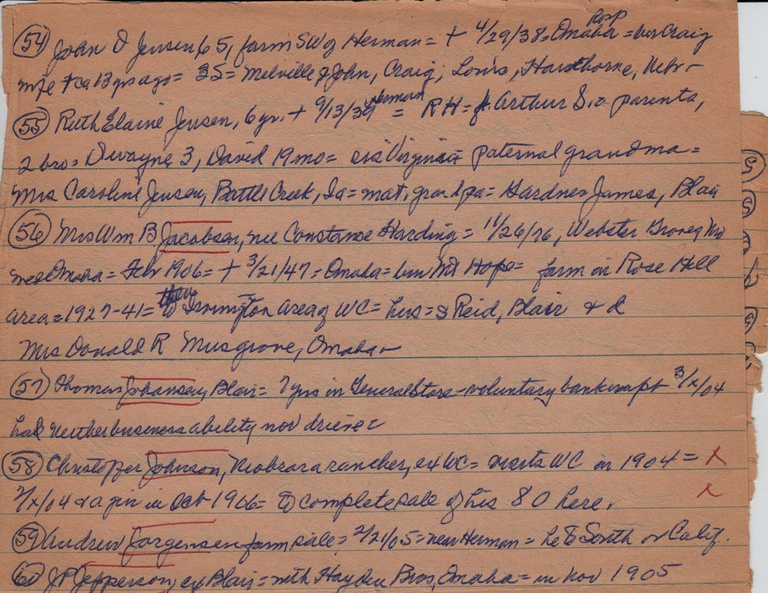 (54) John D Jensen 65, farm SW of Herman = + 4/29/38 = Omaha Hosp = bur Craig
wife + ca 13 yrs ago = 3S = Melville & John, Craig; Louis, Hawthorne, Nebr -
(55) Ruth Elaine Jensen, 6 yr. + 9/13/39 Herman = RH = f. Arthur S. = parents,
2 bro = Dwayne 3, David 19 mo = sis Virginia = paternal grandma =
Mrs Caroline Jensen, Battle Creek, Ia = mat. grandpa = Gardner James, Blair
(56) Mrs Wm B Jacobsen, nee Constance Harding = 11/26/76, Webster Groves Mo
Omaha = Feb 1906 = + 3/21/47 = Omaha = bur Mt Hope = farm in Rose Hill
area = 1927-41 = then to Irvington area of WC = hus = s Reid, Blair & d
Mrs Donald R Musgrove, Omaha -
(57) Thomas Johansen, Blair = 7 yrs in General Store - voluntary bankrupt 3/x/04
had neither business ability nor drive =
(58) Christoffer Johnson, Niobrara rancher, ex WC = visits WC in 1904 = X
/x/04 & again in Oct 1906 = to complete sale of his 80 here. X
(59) Andrew Jorgensen farm sale = 2/21/05 = near Herman = he to South or Calif.
(60) JP Jepperson, ex Blair = with Hayden Bros, Omaha = in Nov 1905